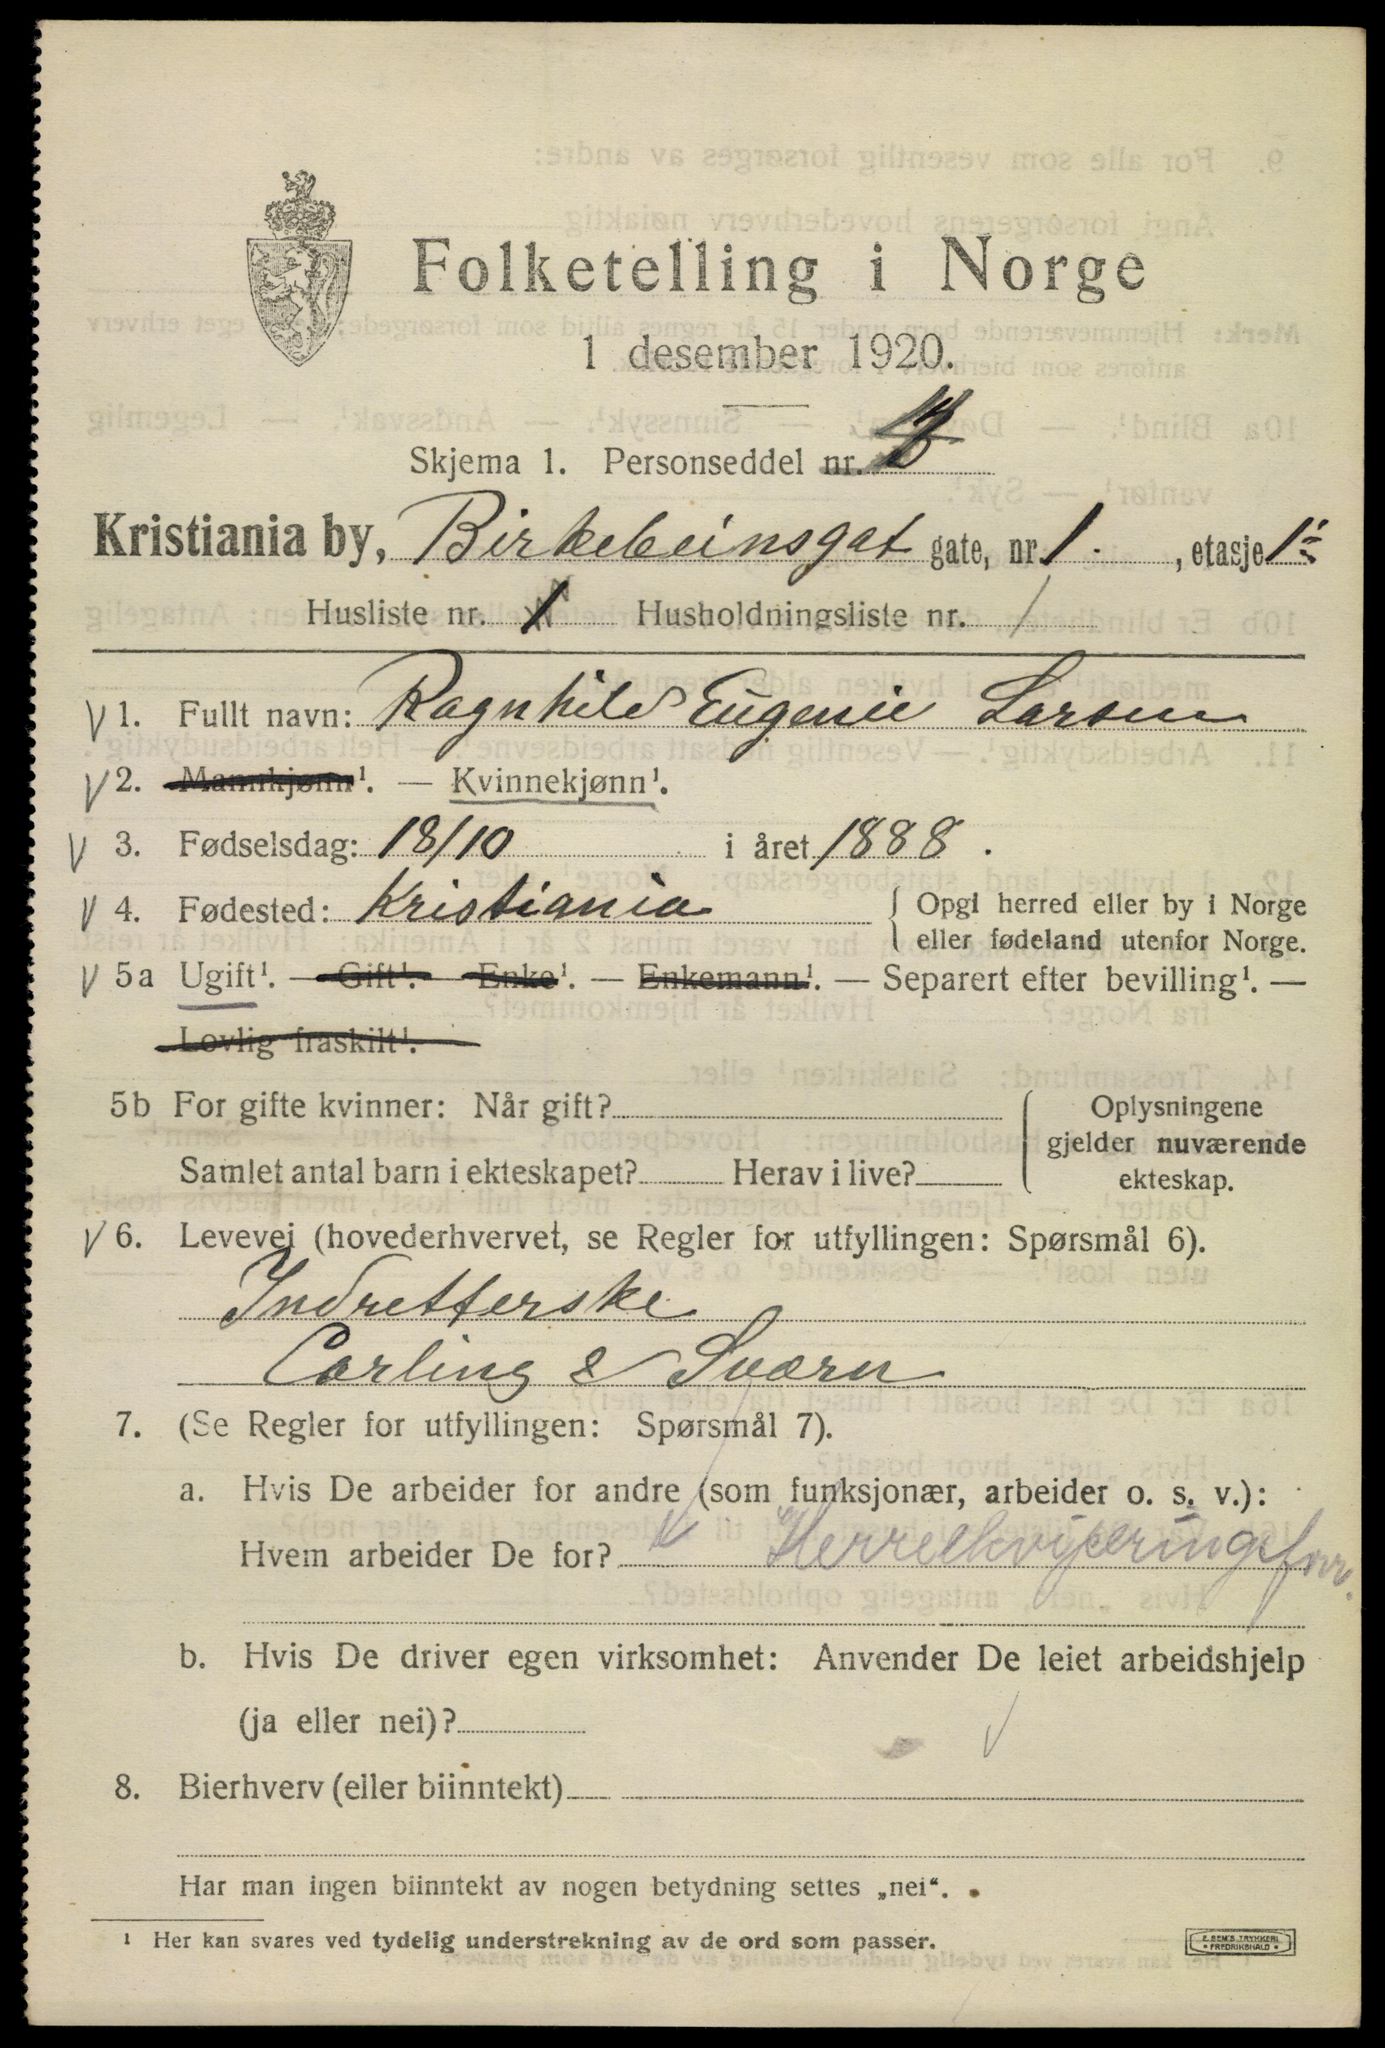 Folketelling i Norge
1 desember 1920.
Skjema 1. Personseddel nr.
Kristiania by, Birkebeinsgat gate, nr 1. , etasje 1
Husliste nr. 1 Husholdningsliste nr. 1
1. Fullt navn: Ragnhild Eugenie Larsen
2. Mannkjønn¹. — Kvinnekjønn¹.
3. Fødselsdag: 18/10 i året 1888.
4. Fødested: Kristiania { Opgi herred eller by i Norge
eller fødeland utenfor Norge.
5a Ugift¹. — Gift¹. — Enke¹. — Enkemann¹. — Separert efter bevilling¹. —
Lovlig fraskilt¹.
5b For gifte kvinner: Når gift? { Oplysningene
gjelder nuværende
Samlet antal barn i ekteskapet? Herav i live? ekteskap.
6. Levevei (hovederhvervet, se Regler for utfyllingen: Spørsmål 6).
Indretterske
Carling & Sværn
7. (Se Regler for utfyllingen: Spørsmål 7).
a. Hvis De arbeider for andre (som funksjonær, arbeider o. s. v.):
Hvem arbeider De for? Herreekviperingsforr.
b. Hvis De driver egen virksomhet: Anvender De leiet arbeidshjelp
(ja eller nei)?
8. Bierhverv (eller biinntekt)
Har man ingen biinntekt av nogen betydning settes „nei".
¹ Her kan svares ved tydelig understrekning av de ord som passer.
E. SEM'S TRYKKERI
• FREDRIKSHALD •